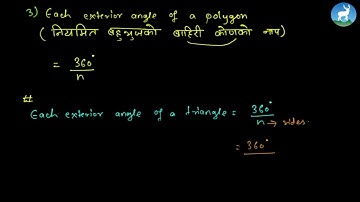 3) Each exterior angle of a polygon
( नियमित बहुभुजको बाहिरी कोणको नाप)
= 360°
n
#
Each exterior angle of a triangle = 360°
n → sides.
= 360°